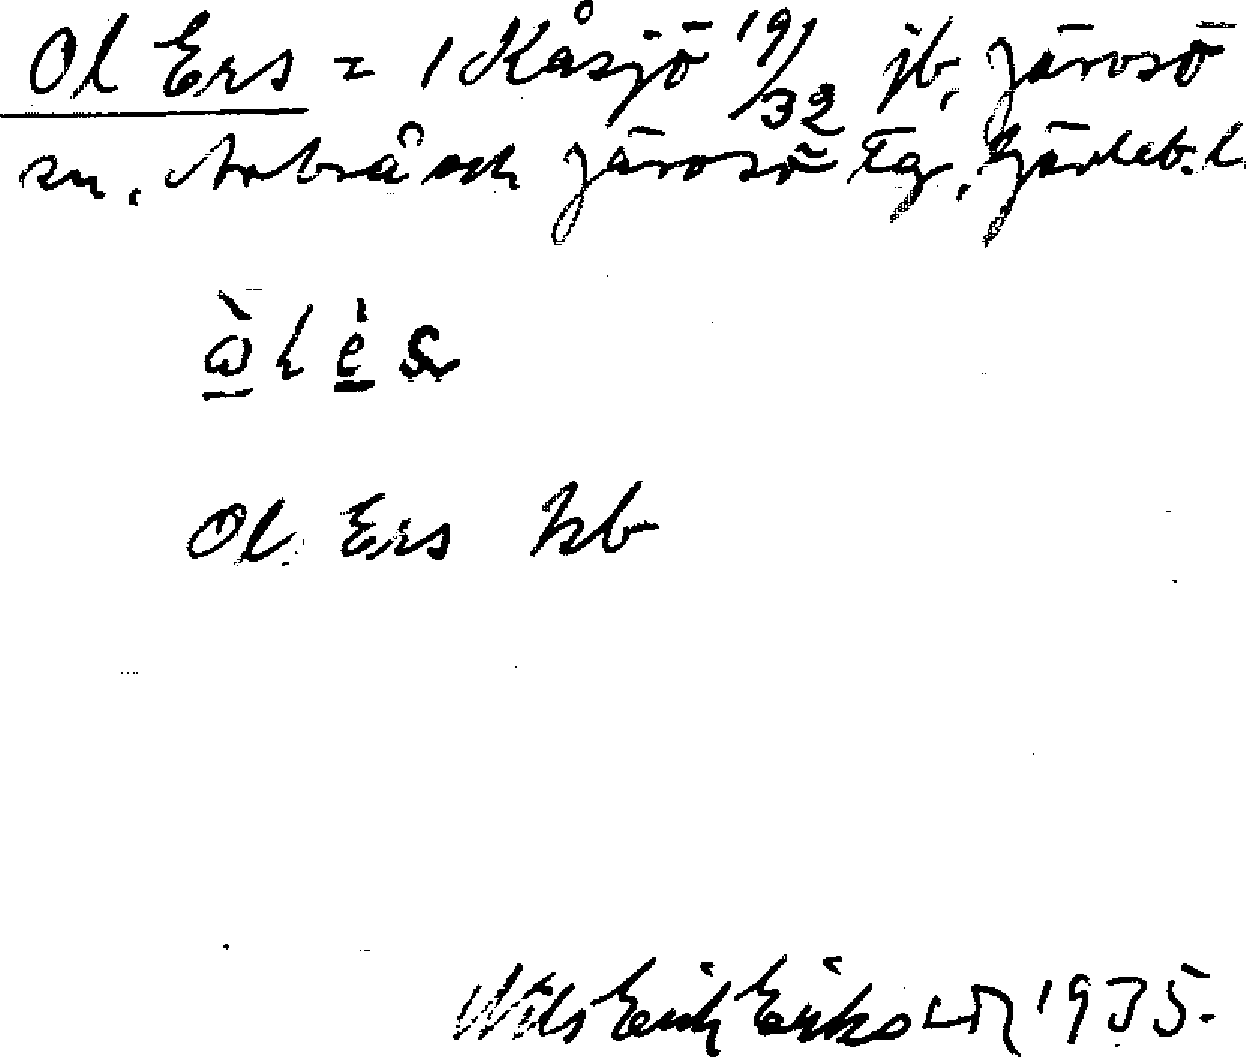 Ol Ers = 1 Kåsjö 19/32 jb, Järvsö
sn, Arbrå och Järvsö tg, Gävleb. l.
Ol Ers kb
Nils Erik Eriksson 1935.